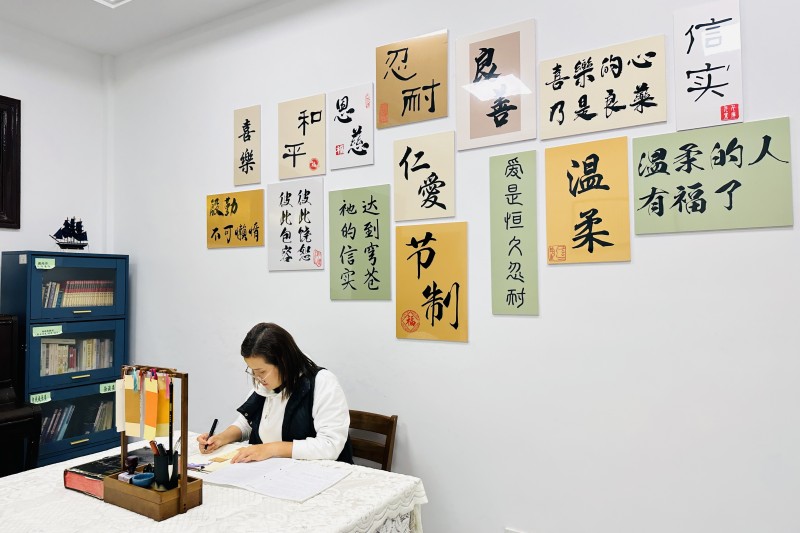 喜樂
和平
恩慈
忍耐
良善
喜樂的心
乃是良藥
信实
殷勤
不可懶惰
彼此包容
彼此饶恕
祂的信实
达到穹苍
仁愛
节制
福
愛是恒久忍耐
温柔
温柔的人
有福了